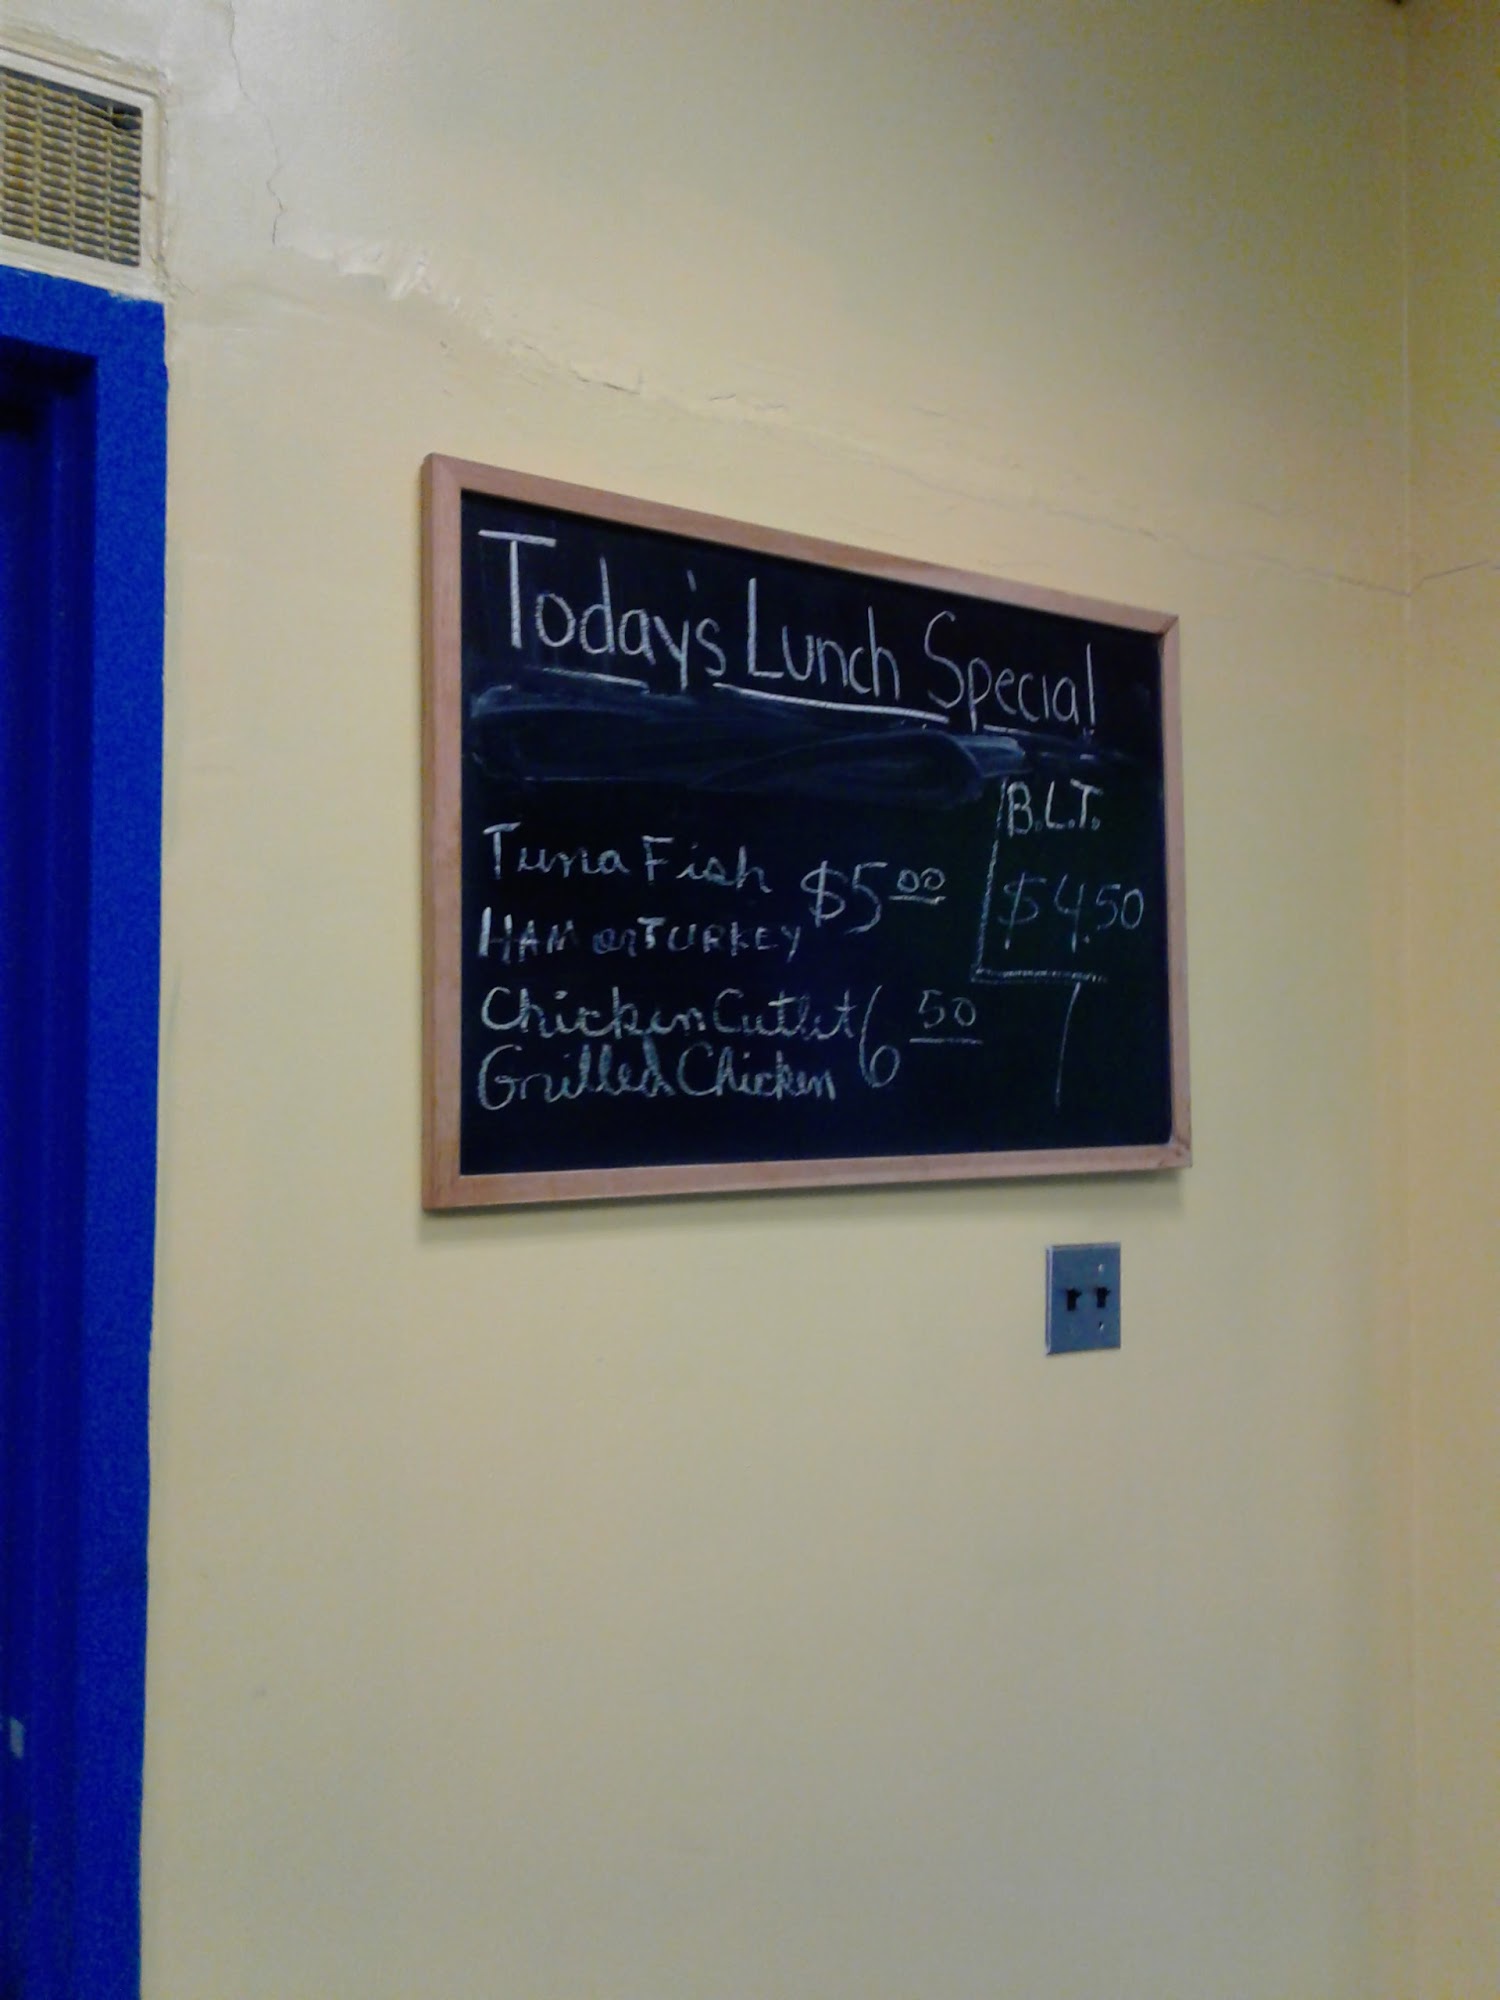 Today's Lunch Special
B.L.T.
$4.50
Tuna Fish
HAM or TURKEY
$5.00
Chicken Cutlet
Grilled Chicken
6 50